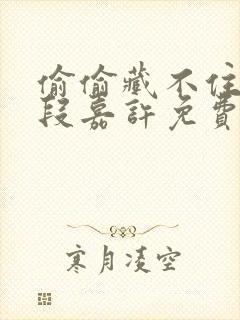 偷偷藏不住
段嘉許免費
寒月凌空